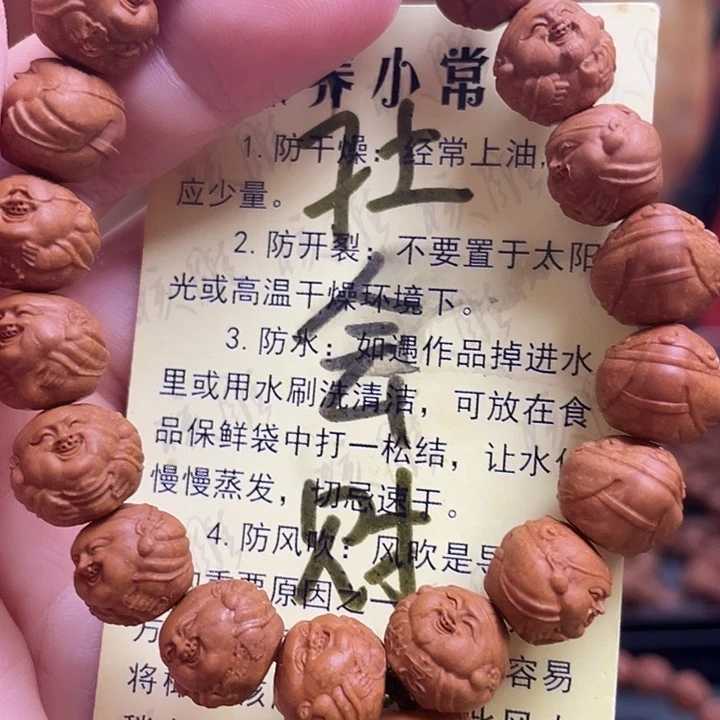 养小常
1. 防干燥：经常上油，
应少量。
2. 防开裂：不要置于太阳
光或高温干燥环境下。
3. 防水：如遇作品掉进水
里或用水刷洗清洁，可放在食
品保鲜袋中打一松结，让水
慢慢蒸发，切忌速干。
4. 防风吹：风吹是导
重要原因之一
方
将 容易
社会财